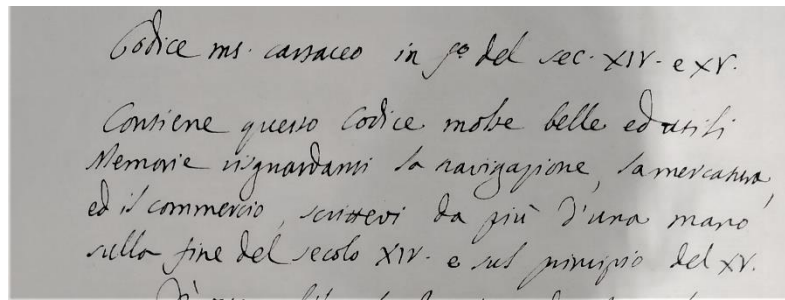 Codice ms. cartaceo in f.º del sec. XIV. e XV.
Contiene questo Codice molte belle ed utili
Memorie risguardanti la navigazione, la mercatura,
ed il commercio, scrittevi da più d'una mano
sulla fine del secolo XIV. e sul principio del XV.